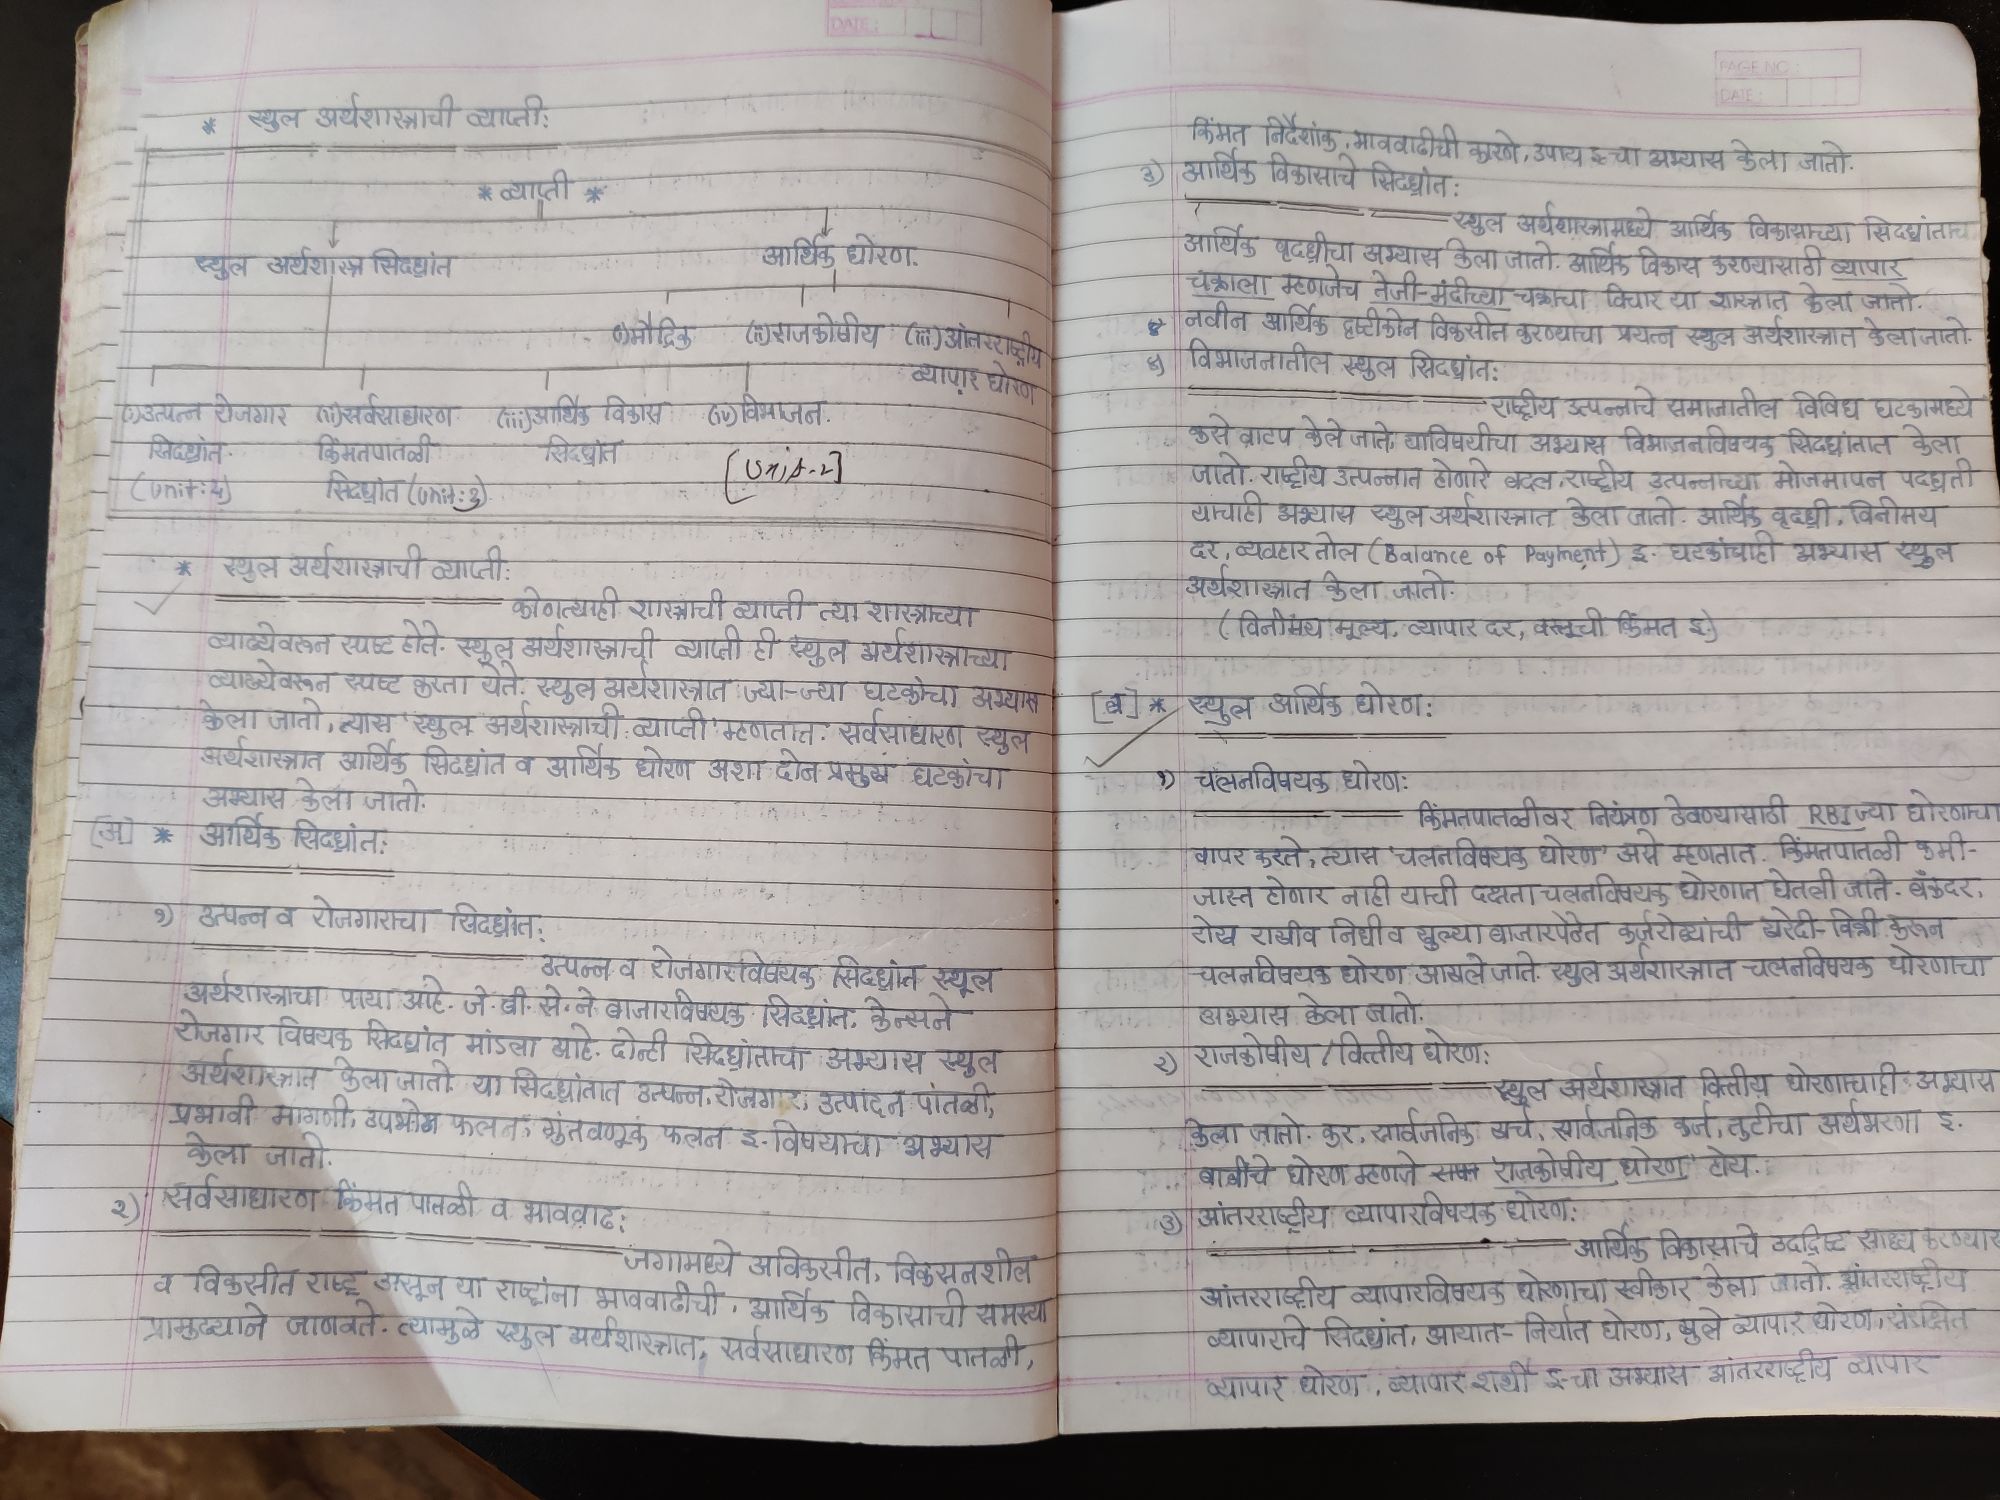 DATE:
* स्थुल अर्थशास्त्राची व्याप्ती:
* व्याप्ती *
स्थुल अर्थशास्त्र सिद्धांत
आर्थिक धोरण.
i) मौद्रिक (ii) राजकोषीय (iii) आंतरराष्ट्रीय
व्यापार धोरण
(i) उत्पन्न रोजगार (ii) सर्वसाधारण (iii) आर्थिक विकास (iv) विभाजन.
सिद्धांत किंमतपातळी सिद्धांत [Unit-2]
(Unit:4) सिद्धांत (Unit:3)
* स्थुल अर्थशास्त्राची व्याप्ती:
कोणत्याही शास्त्राची व्याप्ती त्या शास्त्राच्या
व्याख्येवरून स्पष्ट होते. स्थुल अर्थशास्त्राची व्याप्ती ही स्थुल अर्थशास्त्राच्या
व्याख्येवरून स्पष्ट करता येते. स्थुल अर्थशास्त्रात ज्या-ज्या घटकांचा अभ्यास
केला जातो, त्यास 'स्थुल अर्थशास्त्राची व्याप्ती' म्हणतात. सर्वसाधारण स्थुल
अर्थशास्त्रात आर्थिक सिद्धांत व आर्थिक धोरण अशा दोन प्रमुख घटकांचा
अभ्यास केला जातो.
[अ] * आर्थिक सिद्धांत:
१) उत्पन्न व रोजगाराचा सिद्धांत:
उत्पन्न व रोजगारविषयक सिद्धांत स्थूल
अर्थशास्त्राचा पाया आहे. जे. बी. से. ने बाजारविषयक सिद्धांत, केन्सने
रोजगार विषयक सिद्धांत मांडला आहे. दोन्ही सिद्धांताचा अभ्यास स्थुल
अर्थशास्त्रात केला जातो. या सिद्धांतात उत्पन्न, रोजगार, उत्पादन पातळी,
प्रभावी मागणी, उपभोग फलन, गुंतवणूक फलन इ. विषयाचा अभ्यास
केला जातो.
२) सर्वसाधारण किंमत पातळी व भाववाढ:
जगामध्ये अविकसीत, विकसनशील
व विकसीत राष्ट्र असून या राष्ट्रांना भाववाढीची, आर्थिक विकासाची समस्या
प्रामुख्याने जाणवते. त्यामुळे स्थुल अर्थशास्त्रात, सर्वसाधारण किंमत पातळी,
PAGE NO:
DATE:
किंमत निर्देशांक, भाववाढीची कारणे, उपाय इ.चा अभ्यास केला जातो.
३) आर्थिक विकासाचे सिद्धांत:
स्थुल अर्थशास्त्रामध्ये आर्थिक विकासाच्या सिद्धांताच
आर्थिक वृद्धीचा अभ्यास केला जातो. आर्थिक विकास करण्यासाठी व्यापार
चक्राला म्हणजेच तेजी-मंदीच्या चक्राचा विचार या शास्त्रात केला जातो.
नवीन आर्थिक दृष्टीकोन विकसीत करण्याचा प्रयत्न स्थुल अर्थशास्त्रात केला जातो.
४) विभाजनातील स्थुल सिद्धांत:
राष्ट्रीय उत्पन्नाचे समाजातील विविध घटकामध्ये
कसे वाटप केले जाते, याविषयीचा अभ्यास विभाजनविषयक सिद्धांतात केला
जातो. राष्ट्रीय उत्पन्नात होणारे बदल, राष्ट्रीय उत्पन्नाच्या मोजमापन पद्धती
याचाही अभ्यास स्थुल अर्थशास्त्रात केला जातो. आर्थिक वृद्धी, विनीमय
दर, व्यवहारतोल (Balance of Payment) इ. घटकांचाही अभ्यास स्थुल
अर्थशास्त्रात केला जातो.
(विनीमय मूल्य, व्यापार दर, वस्तूची किंमत इ)
[ब] * स्थुल आर्थिक धोरण:
१) चलनविषयक धोरण:
किंमतपातळीवर नियंत्रण ठेवण्यासाठी RBI ज्या धोरणाचा
वापर करते, त्यास 'चलनविषयक धोरण' असे म्हणतात. किंमतपातळी कमी-
जास्त होणार नाही याची दक्षता चलनविषयक धोरणात घेतली जाते. बँकदर,
रोख राखीव निधी व खुल्या बाजारपेठेत कर्जरोख्यांची खरेदी-विक्री करून
चलनविषयक धोरण आखले जाते. स्थुल अर्थशास्त्रात चलनविषयक धोरणाचा
अभ्यास केला जातो.
२) राजकोषीय / वित्तीय धोरण:
स्थुल अर्थशास्त्रात वित्तीय धोरणाचाही अभ्यास
केला जातो. कर, सार्वजनिक खर्च, सार्वजनिक कर्ज, तुटीचा अर्थभरणा इ.
बाबींचे धोरण म्हणजे 'राजकोषीय धोरण' होय.
३) आंतरराष्ट्रीय व्यापारविषयक धोरण:
आर्थिक विकासाचे उद्दिष्ट साध्य करण्यास
आंतरराष्ट्रीय व्यापारविषयक धोरणाचा स्वीकार केला जातो. आंतरराष्ट्रीय
व्यापाराचे सिद्धांत, आयात-निर्यात धोरण, खुले व्यापार धोरण, संरक्षित
व्यापार धोरण, व्यापार शर्थी इ.चा अभ्यास आंतरराष्ट्रीय व्यापार